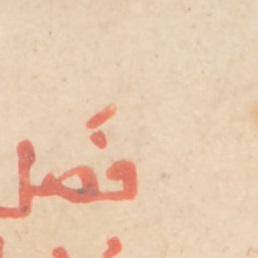 فَصل